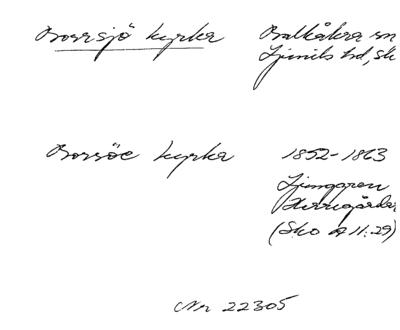 Bosarsjö kyrka Balkåkra sn
Ljunits hd, Sk
Borsöe kyrka 1852-1863
Ljunggren
Herregårdar
(Sko A 11:29)
Nr 22305